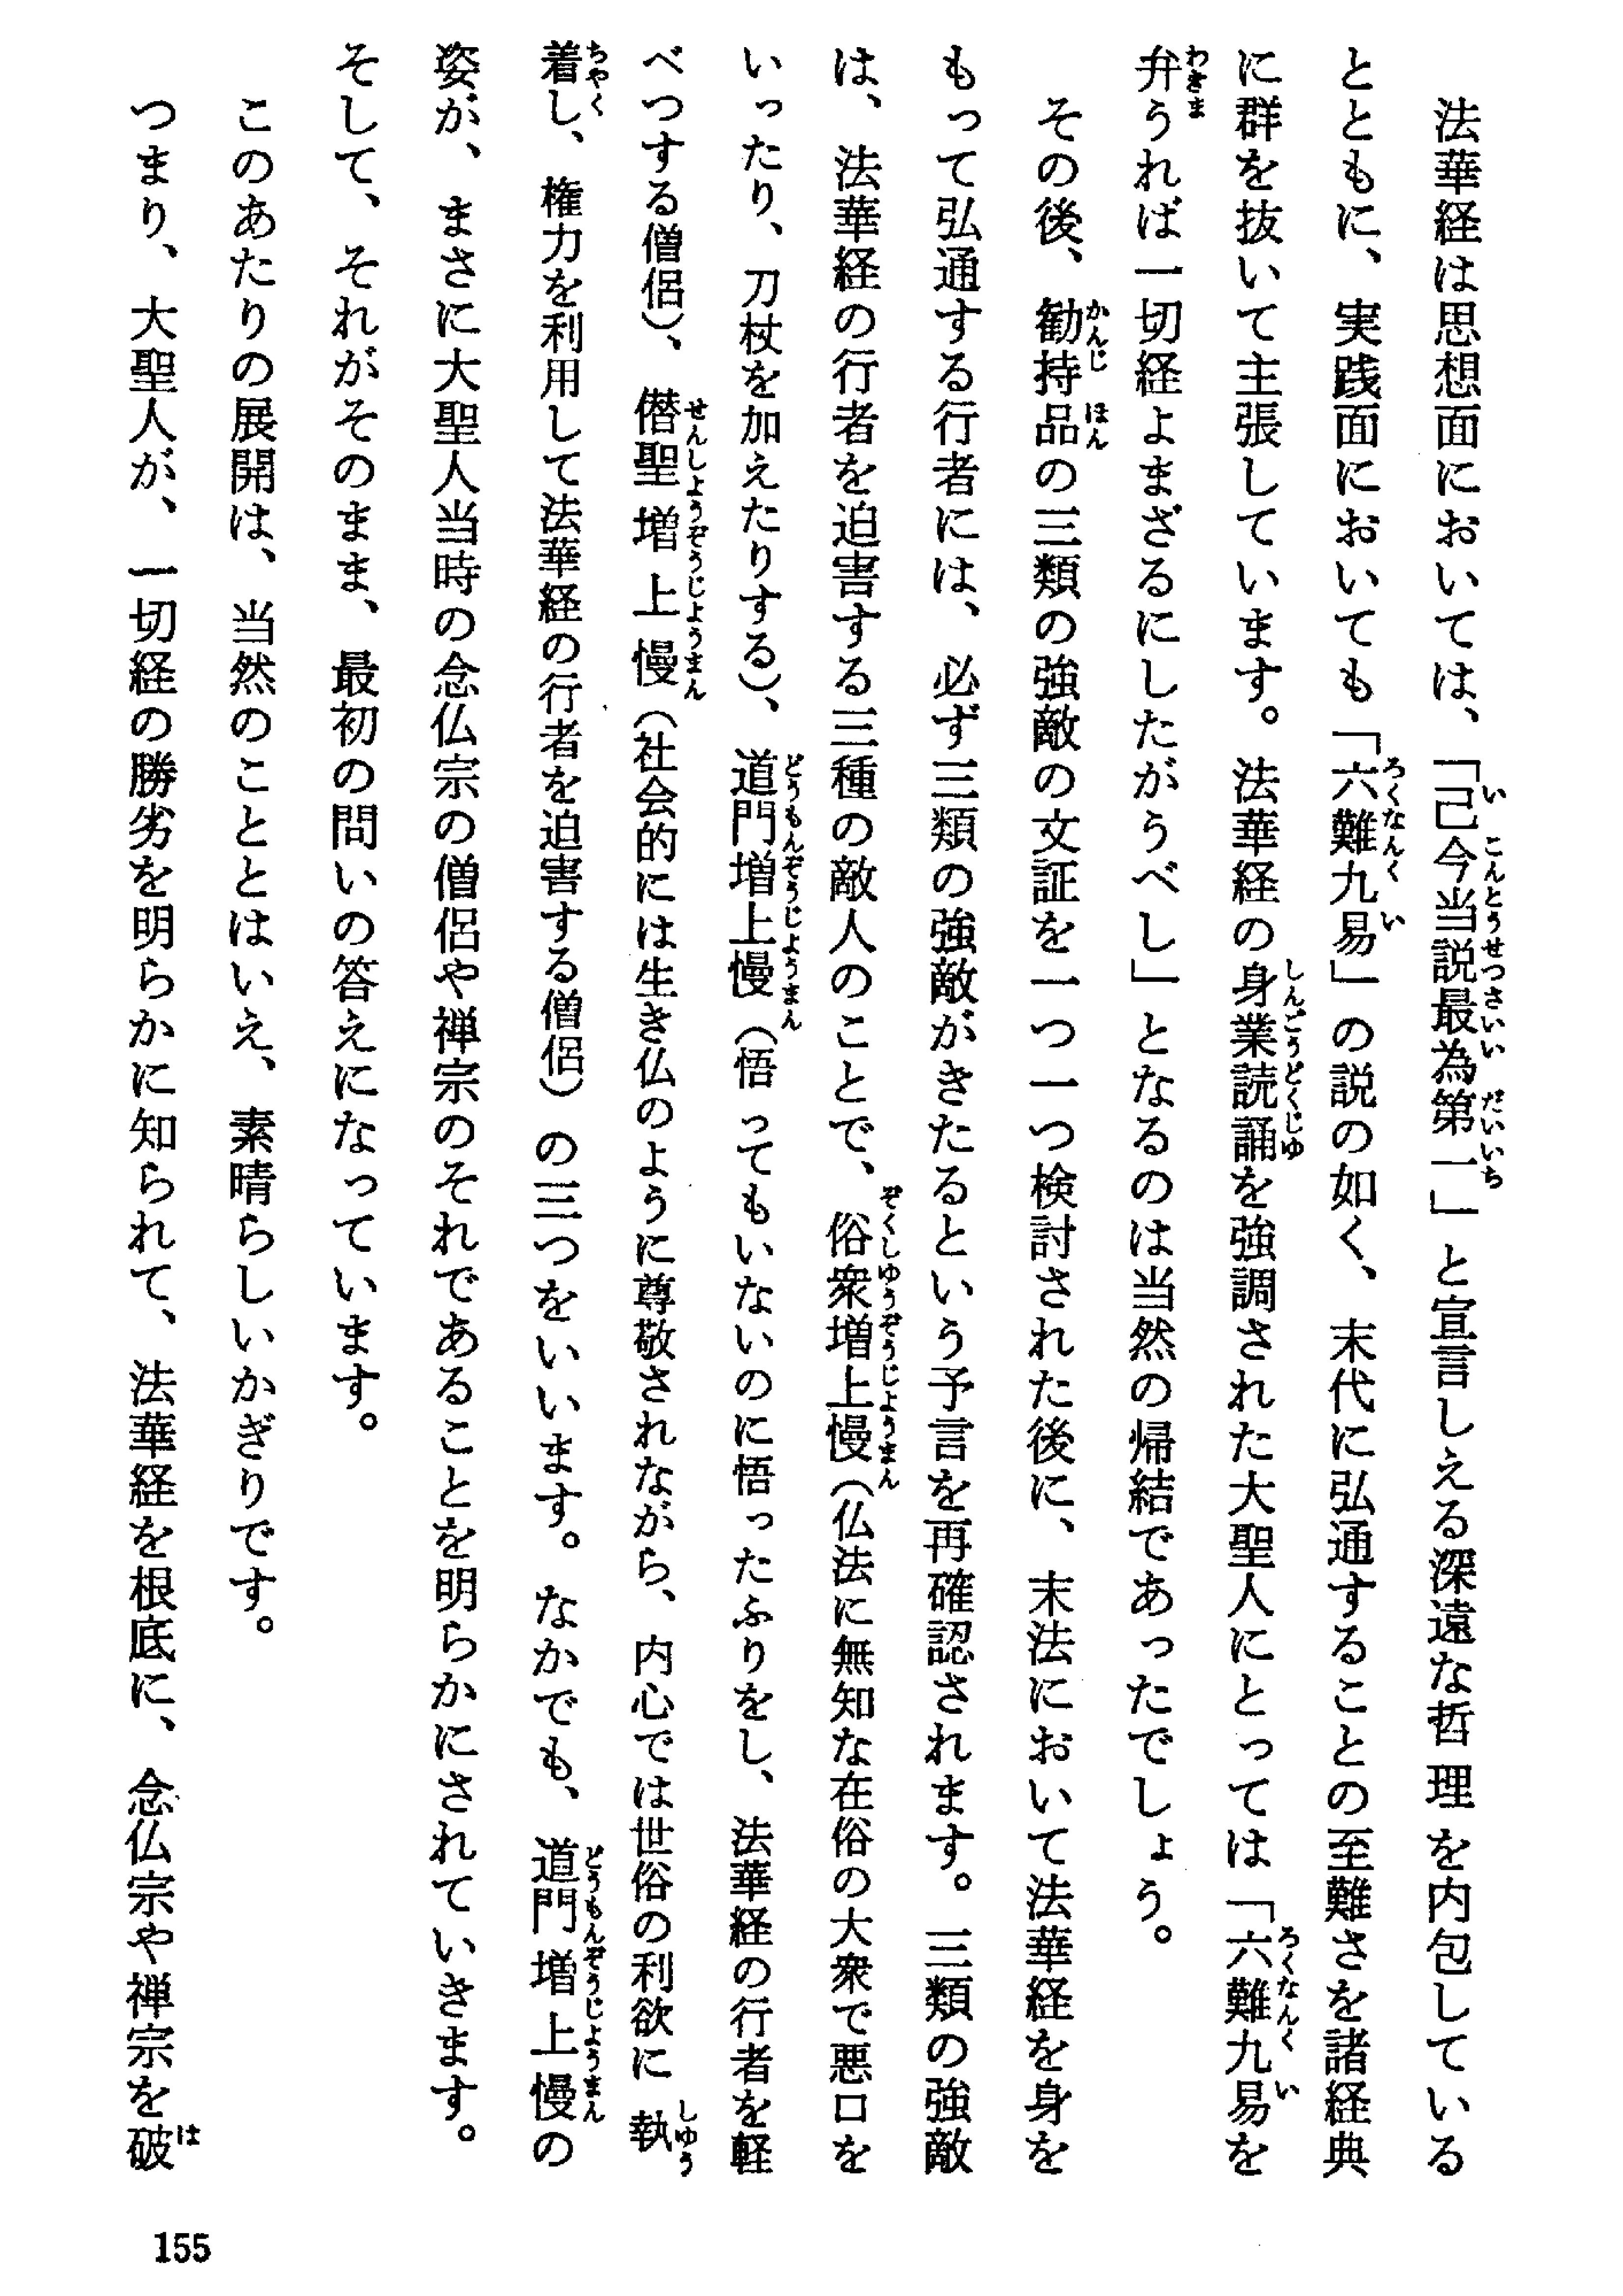 法華経は思想面においては、「已今当説最為第一」と宣言しえる深遠な哲理を内包している
とともに、実践面においても「六難九易」の説の如く、末代に弘通することの至難さを諸経典
に群を抜いて主張しています。法華経の身業読誦を強調された大聖人にとっては「六難九易を
弁うれば一切経よまざるにしたがうべし」となるのは当然の帰結であったでしょう。
その後、勧持品の三類の強敵の文証を一つ一つ検討された後に、末法において法華経を身を
もって弘通する行者には、必ず三類の強敵がきたるという予言を再確認されます。三類の強敵
は、法華経の行者を迫害する三種の敵人のことで、俗衆増上慢（仏法に無知な在俗の大衆で悪口を
いったり、刀杖を加えたりする）、道門増上慢（悟ってもいないのに悟ったふりをし、法華経の行者を軽
べつする僧侶）、僭聖増上慢（社会的には生き仏のように尊敬されながら、内心では世俗の利欲に執
着し、権力を利用して法華経の行者を迫害する僧侶）の三つをいいます。なかでも、道門増上慢の
姿が、まさに大聖人当時の念仏宗の僧侶や禅宗のそれであることを明らかにされていきます。
そして、それがそのまま、最初の問いの答えになっています。
このあたりの展開は、当然のこととはいえ、素晴らしいかぎりです。
つまり、大聖人が、一切経の勝劣を明らかに知られて、法華経を根底に、念仏宗や禅宗を破
155